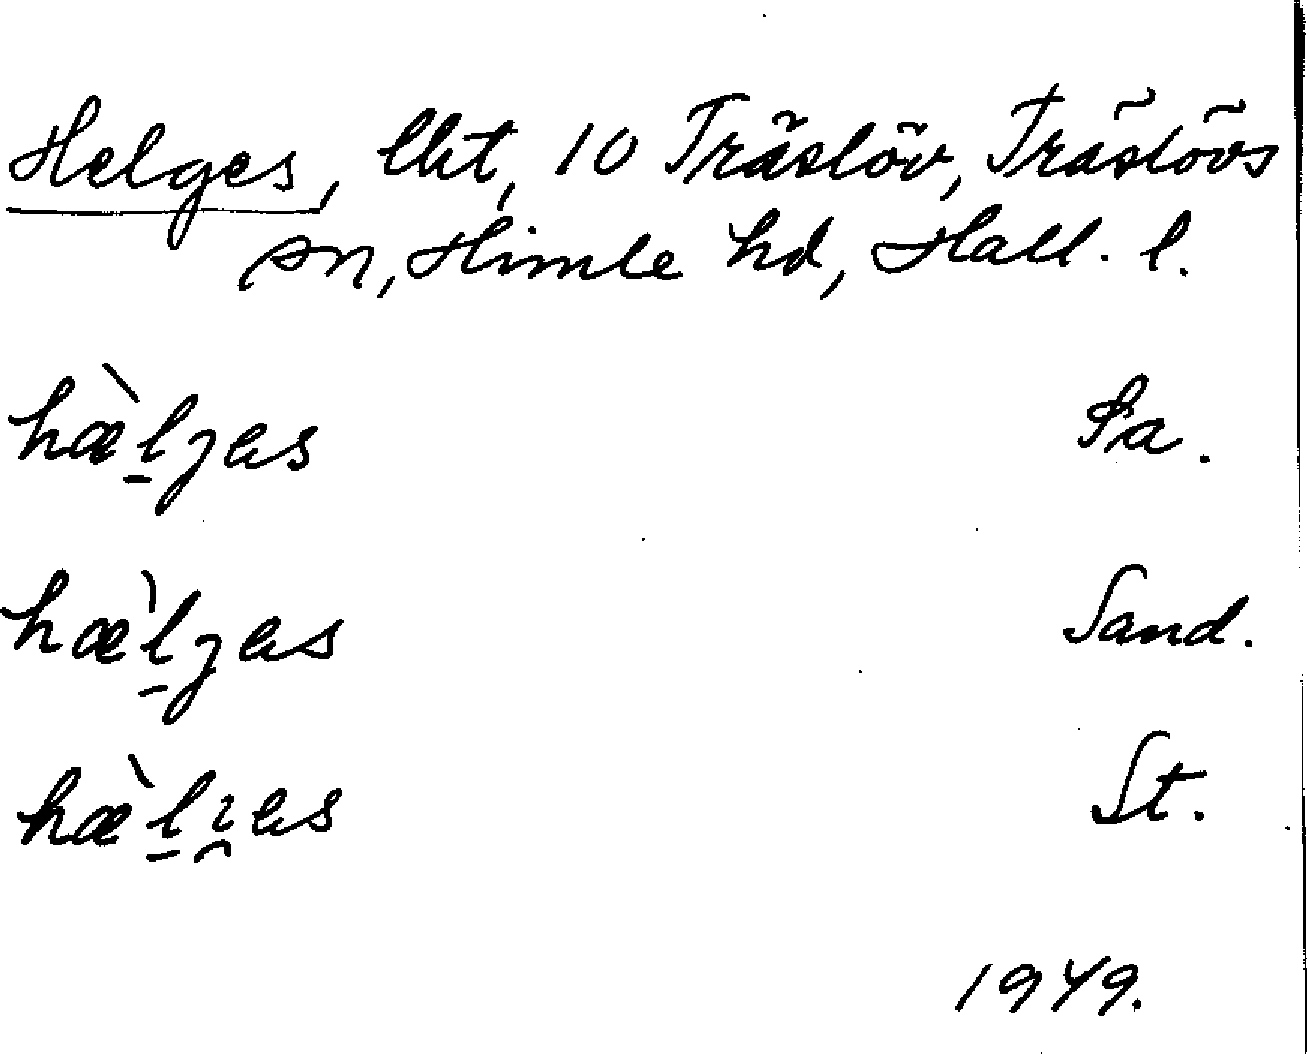 Helges, lht, 10 Träslöv, Träslövs
sn, Himle hd, Hall. l.
hæ̀l̠jɐs Pa.
hæ̀l̠jɐs Sand.
hæ̀l̠ı̯ɐs St.
1949.